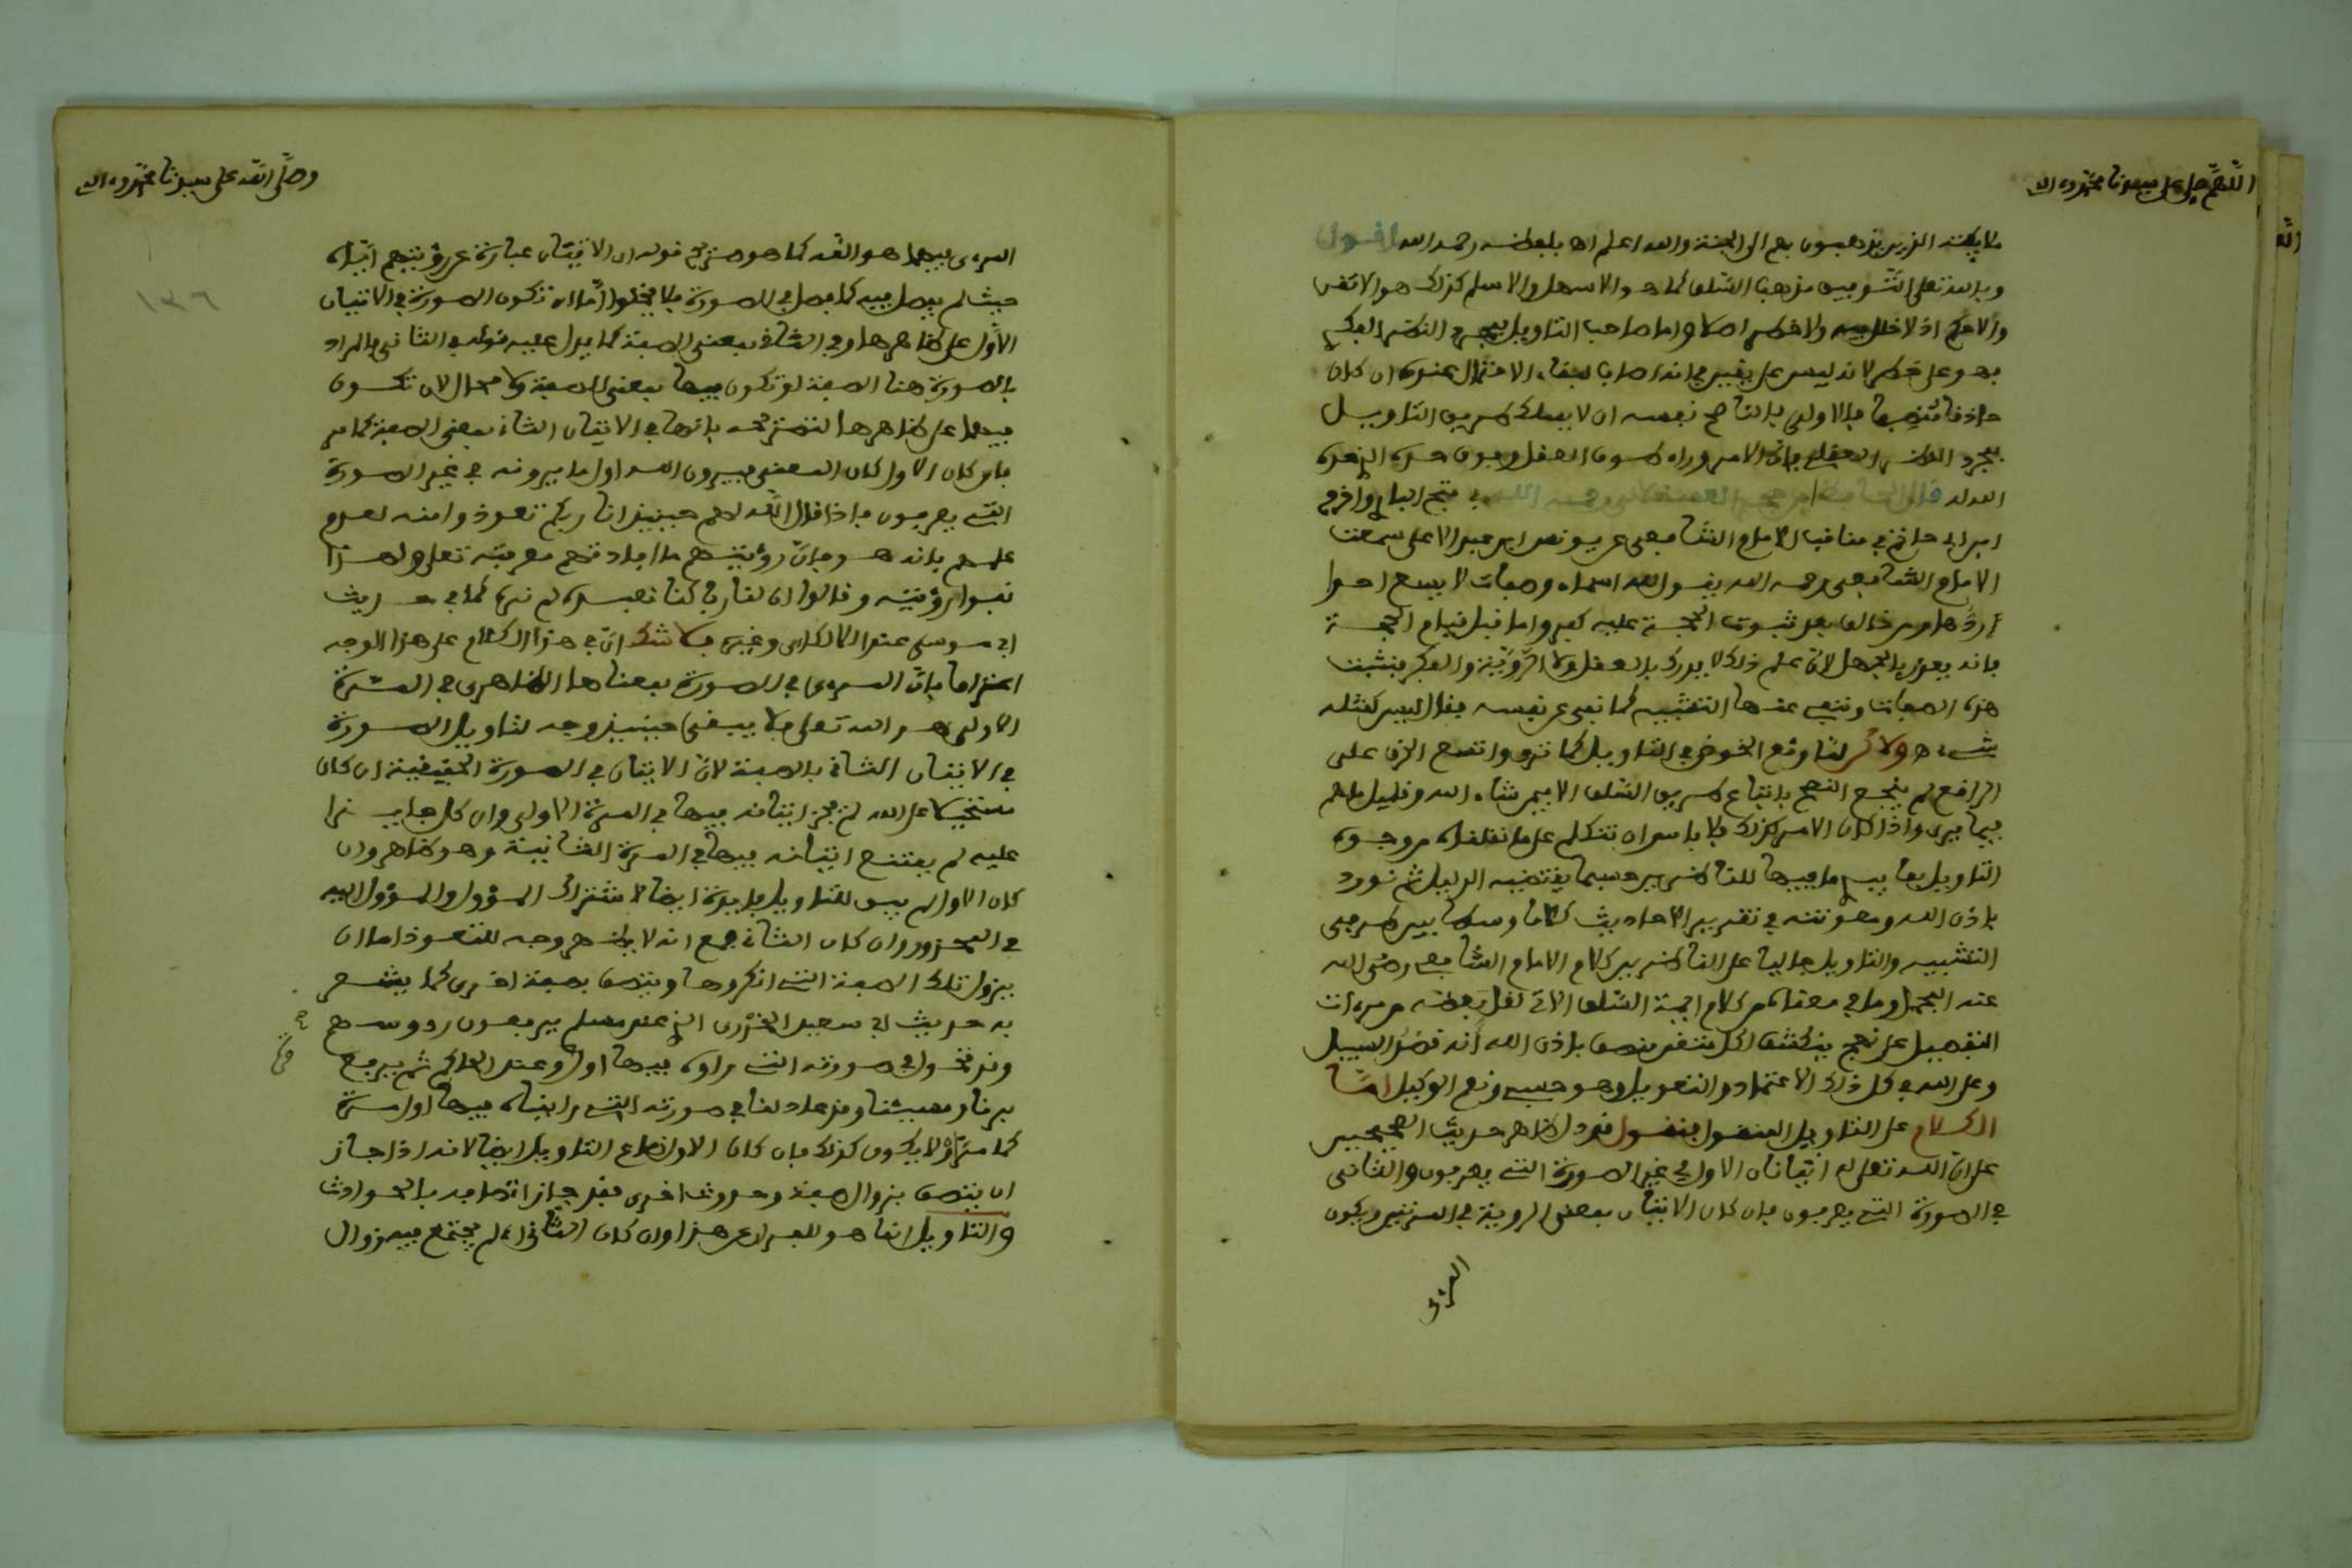 اللهم صل على سيدنا محمد وءاله
ملايكته الذين يذهبون بهم الى الجنة والله اعلم اه بلفظه رحمه الله اقول
وبالله تعلى التوفيق مذهب السلف كما هو الاسهل والاسلم كذلك هو الاتقن
والاحكم اذ لا خلل فيه ولا خطر اصلا واما صاحب التاويل بمجرد النظر الفكري
فهو على خطر لانه ليس على يقين من انه اصاب لبقاء الاحتمال عنده ان كان
حاذقا منصفا فالاولى بالناصح نفسه ان لا يسلك طريق التاويل
بمجرد النظر العقلي فان الامر وراء طور العقل ودون حده الذي حده
الله له قال الحافظ ابن حجر العسقلاني رحمه الله في فتح الباري واخرج
ابن ابي حاتم في مناقب الامام الشافعي عن يونس ابن عبد الاعلى سمعت
الامام الشافعي رحمه الله يقول لله اسماء وصفات لا يسع احدا
ردها ومن خالف بعد ثبوت الحجة عليه كفر واما قبل قيام الحجة
فانه يعذر بالجهل لان علم ذلك لا يدرك بالعقل ولا الروية والفكر فنثبت
هذه الصفات وننفي عنها التشبيه كما نفى عن نفسه فقال ليس كمثله
شيء اه ولاكن لما وقع الخوض في التاويل كما ترى واتسع الخرق على
الراقع لم ينجح النصح باتباع طريق السلف الا فيمن شاء الله وقليل ما هم
فيما يرى واذا كان الامر كذلك فلا باس ان نتكلم على ما نقلناه من وجوه
التاويل بما يبين ما فيها للناظرين حسبما يقتضيه الدليل ثم نورد
باذن الله ومعونته في تقرير الاحاديث كلاما وسطا بين طرفي
التشبيه والتاويل جاليا على الناظرين كلام الامام الشافعي رضي الله
عنه المجمل وما في معناه من كلام ايمة السلف الاتي نقل بعضه من مرءات
التفصيل على نهج ينكشف لكل متفرس منصف باذن الله انه قصد السبيل
وعلى الله في كل ذلك الاعتماد والتعويل وهو حسبي ونعم الوكيل اما
الكلام على التاويل المنقول فنقول قد دل ظاهر حديث الصحيحين
على ان الله تعلى له اتيانان الاول في غير الصورة التي يعرفون والثاني
في الصورة التي يعرفون فان كان الاتيان بمعنى الروية في المرتين ويكون
المرءي
وصلى الله على سيدنا محمد وءاله
١٣٦
المرءى فيهما هو الله كما هو صريح قوله ان الاتيان عبارة عن رؤيتهم اياه
حيث لم يفصل فيه كما فصل في الصورة فلا يخلوا اما ان تكون الصورة في الاتيان
الاول على ظاهرها وفي الثاني بمعنى الصفة كما يدل عليه قوله في الثاني والمراد
بالصورة هنا الصفة او تكون فيهما بمعنى الصفة ولا مجال لان تكون
فيهما على ظاهرها لتصريحه بانها في الاتيان الثاني بمعنى الصفة كما مر
فان كان الاول كان المعنى فيرون الله اول ما يرونه في غير الصورة
التي يعرفون فاذا قال الله لهم حينيذ انا ربكم تعوذوا منه لعدم
علمهم بانه هو فان رؤيتهم ما افادتهم معرفته تعلى ولهذا
نفوا رؤيته وقالوا ان لنا ربا كنا نعبده لم نره كما في حديث
ابي موسى عند اللالكاي وغيره فلا شك ان في هذا الكلام على هذا الوجه
اعترافا بان المرءى في الصورة بمعناها الظاهرى في المرة
الاولى هو الله تعلى فلا يبقى حينيذ وجه لتاويل الصورة
في الاتيان الثاني بالصفة لان الاتيان في الصورة الحقيقية ان كان
مستحيلا على الله لم يجز اتيانه فيها في المرة الاولى وان كان جايزا
عليه لم يمتنع اتيانه فيها في المرة الثانية وهو ظاهر وان
كان الاول لم يبق للتاويل فايدة ايضا لاشتراك المؤول والمؤول اليه
في المحذور وان كان الثاني فمع انه لا يظهر وجه للتعوذ اما ان
يزول تلك الصفة التي انكروها ويتصف بصفة اخرى كما يشعر
به حديث ابي سعيد الخدرى الذي عند مسلم يرفعون رءوسهم
وقد تحول في صورته التي راوه فيها اول وعند الحاكم ثم يرفع
برنا ومسيئنا وقد عاد لنا في صورته التي رايناه فيها اول مرة
كما مر او لا يكون كذلك فان كان الاول ضاع التاويل ايضا لانه اذا جاز
ان يتصف بزوال صفة وحدوث اخرى فقد جاز اتصافه بالحوادث
والتاويل انما هو للفرار عن هذا وان كان الثاني اي لم يجتمع فيه زوال